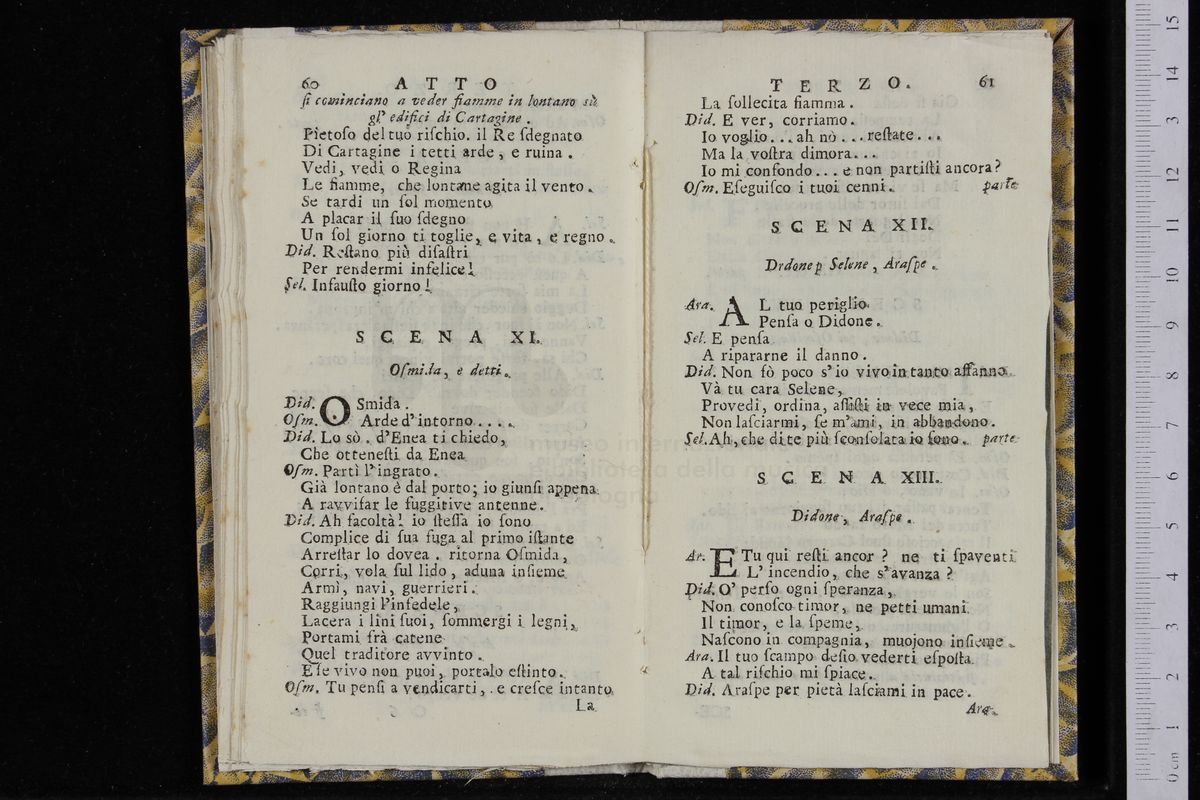 60 ATTO
ſi cominciano a veder fiamme in lontano sù
gl' edifici di Cartagine.
Pietoſo del tuo riſchio. il Re ſdegnato
Di Cartagine i tetti arde, e ruina.
Vedi, vedi o Regina
Le fiamme, che lontane agita il vento.
Se tardi un ſol momento
A placar il ſuo ſdegno
Un ſol giorno ti toglie, e vita, e regno.
Did. Reſtano più diſaſtri
Per rendermi infelice!
Sel. Infauſto giorno!
SCENA XI.
Oſmida, e detti.
Did. OSmida.
Oſm. Arde d'intorno.....
Did. Lo sò. d'Enea ti chiedo,
Che otteneſti da Enea
Oſm. Partì l'ingrato.
Già lontano è dal porto; io giunſi appena
A ravviſar le fuggitive antenne.
Did. Ah facoltà! io ſteſſa io ſono
Complice di ſua fuga al primo iſtante
Arreſtar lo dovea. ritorna Oſmida,
Corri, vola ſul lido, aduna inſieme
Armi, navi, guerrieri.
Raggiungi l'infedele,
Lacera i lini ſuoi, ſommergi i legni,
Portami frà catene
Quel traditore avvinto.
E ſe vivo non puoi, portalo eſtinto.
Oſm. Tu penſi a vendicarti, e creſce intanto
La
TERZO. 61
La ſollecita fiamma.
Did. E ver, corriamo.
Io voglio... ah nò... reſtate...
Ma la voſtra dimora...
Io mi confondo... e non partiſti ancora?
Oſm. Eſeguiſco i tuoi cenni. parte
SCENA XII.
Drdone p Selene, Araſpe.
Ara. AL tuo periglio
Penſa o Didone.
Sel. E penſa
A ripararne il danno.
Did. Non fò poco s'io vivo in tanto affanno.
Và tu cara Selene,
Provedi, ordina, aſſiſti in vece mia,
Non laſciarmi, ſe m'ami, in abbandono.
Sel. Ah, che di te più ſconſolata io ſono. parte
SCENA XIII.
Didone, Araſpe.
Ar. E Tu qui reſti ancor? ne ti ſpaventi
L' incendio, che s'avanza?
Did. O' perſo ogni ſperanza,
Non conoſco timor, ne petti umani
Il timor, e la ſpeme,
Naſcono in compagnia, muojono inſieme.
Ara. Il tuo ſcampo deſio vederti eſpoſta
A tal riſchio mi ſpiace.
Did. Araſpe per pietà laſciami in pace.
Ara.
museo internazionale
biblioteca della musica
di bologna
0 cm 1 2 3 4 5 6 7 8 9 10 11 12 13 14 15